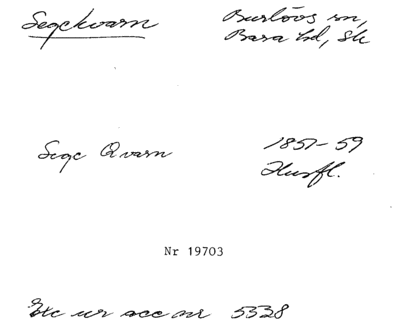 Segekvarn
Burlövs sn,
Bara hd, Sk
Sege Qvarn
1857-59
Husfl.
Nr 19703
Exc ur acc nr 5328